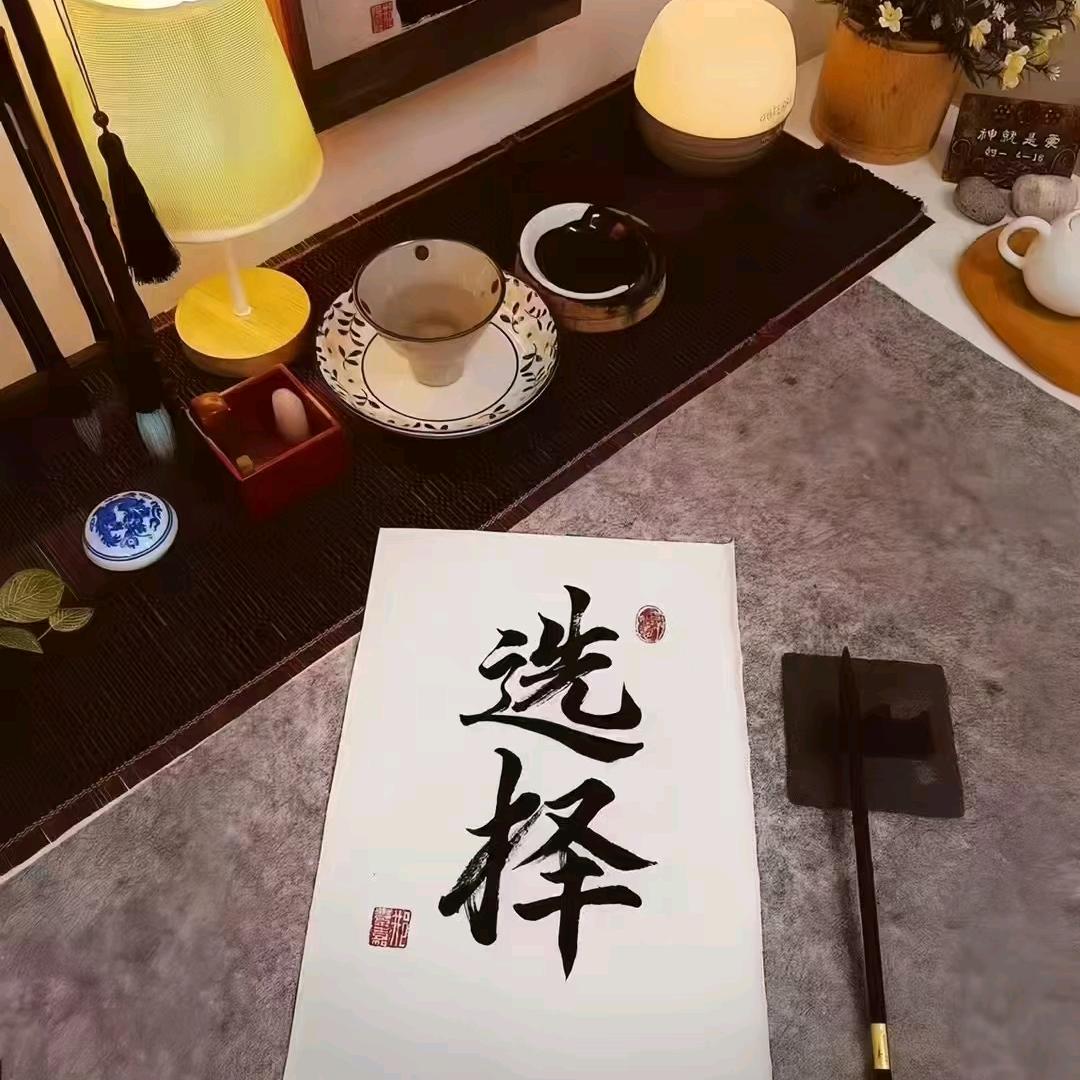 选择
神就是爱
约一 4-16